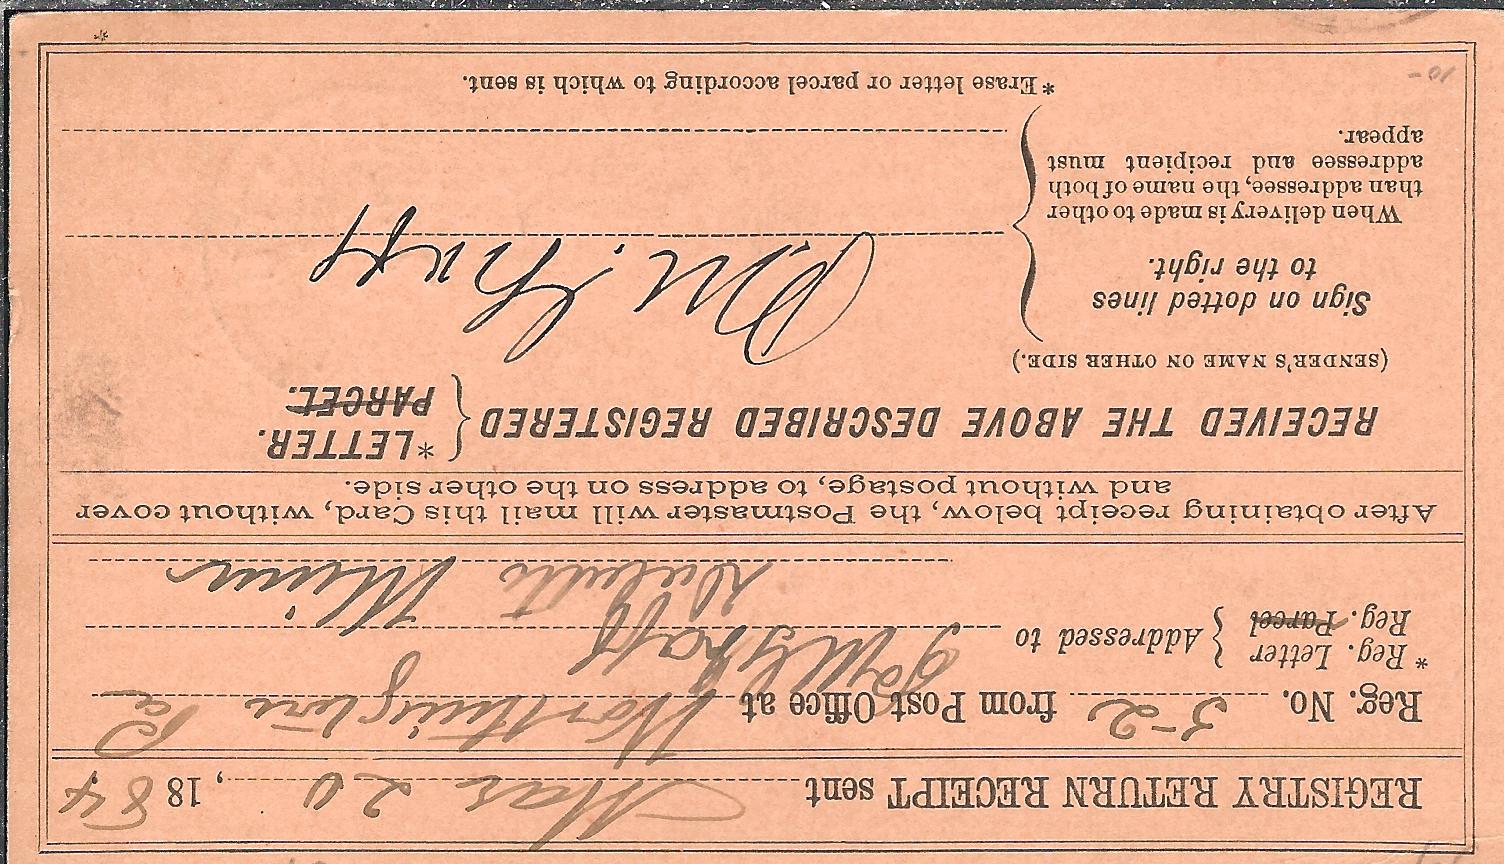 REGISTRY RETURN RECEIPT sent Mar 20, 1884
Reg. No. 52 from Post Office at Worthington Pa
* Reg. Letter
Reg. Parcel } Addressed to
Duluth Minn
After obtaining receipt below, the Postmaster will mail this Card, without cover
and without postage, to address on the other side.
RECEIVED THE ABOVE DESCRIBED REGISTERED { *LETTER.
PARCEL.
(SENDER'S NAME ON OTHER SIDE.)
Sign on dotted lines
to the right.
When delivery is made to other
than addressee, the name of both
addressee and recipient must
appear.
*Erase letter or parcel according to which is sent.
10-